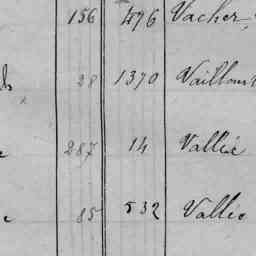 156 496 Vacher,
28 1370 Vaillant
287 14 Vallée
85 532 Vallée